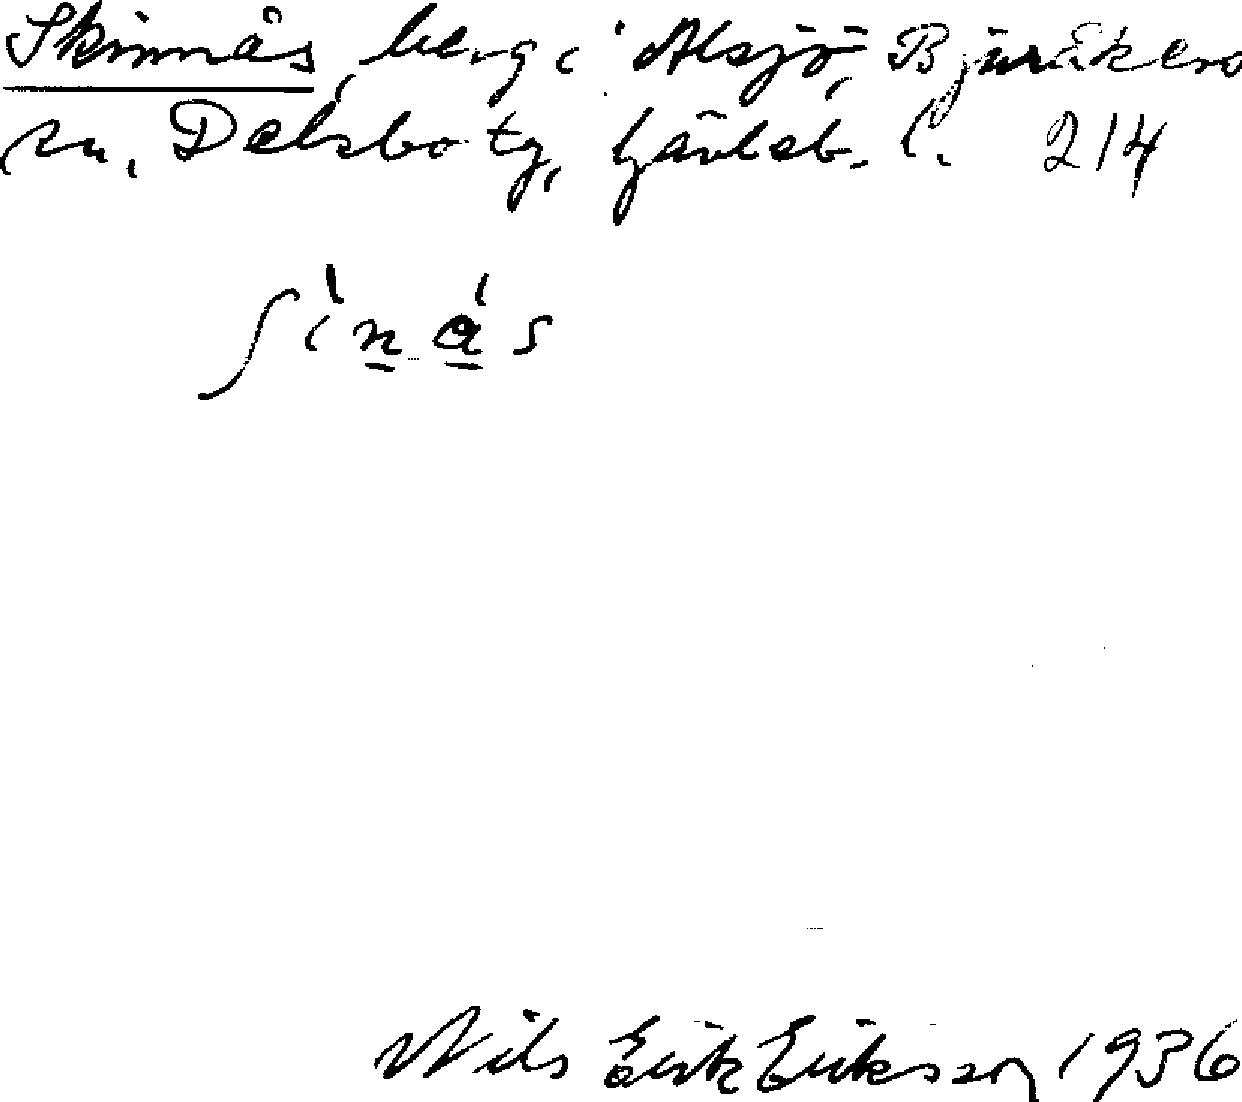 Skinnås, berg i Alsjö, Bjuråkers
sn, Delsbo tg, Gävleb. l. 214
ʃìnás
Nils Erik Eriksson 1936